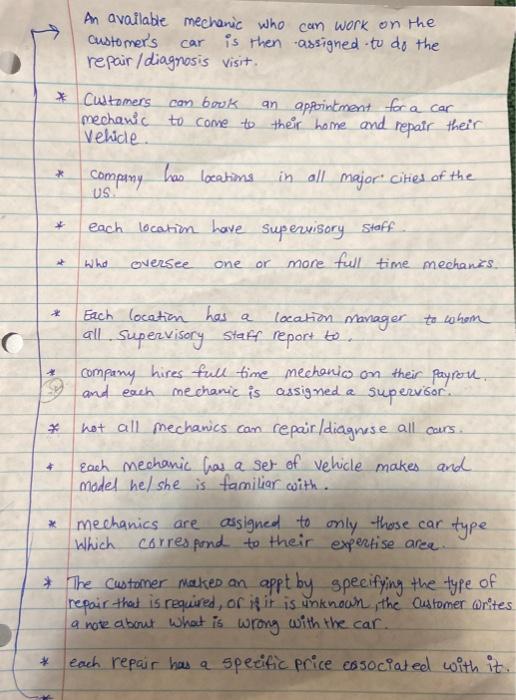 An available mechanic who can work on the
customer's car is then assigned to do the
repair/diagnosis visit.
* Customers can book an appointment for a car
mechanic to come to their home and repair their
vehicle.
* company has locations in all major cities of the
US.
* each location have supervisory staff.
* who oversee one or more full time mechanics.
* Each location has a location manager to whom
all supervisory staff report to.
* company hires full time mechanics on their payroll.
and each mechanic is assigned a supervisor.
* not all mechanics can repair/diagnose all cars.
* Each mechanic has a set of vehicle makes and
model he/she is familiar with.
* mechanics are assigned to only those car type
which correspond to their expertise area.
* The customer makes an appt by specifying the type of
repair that is required, or if it is unknown, the customer writes
a note about what is wrong with the car.
* each repair has a specific price associated with it.
*